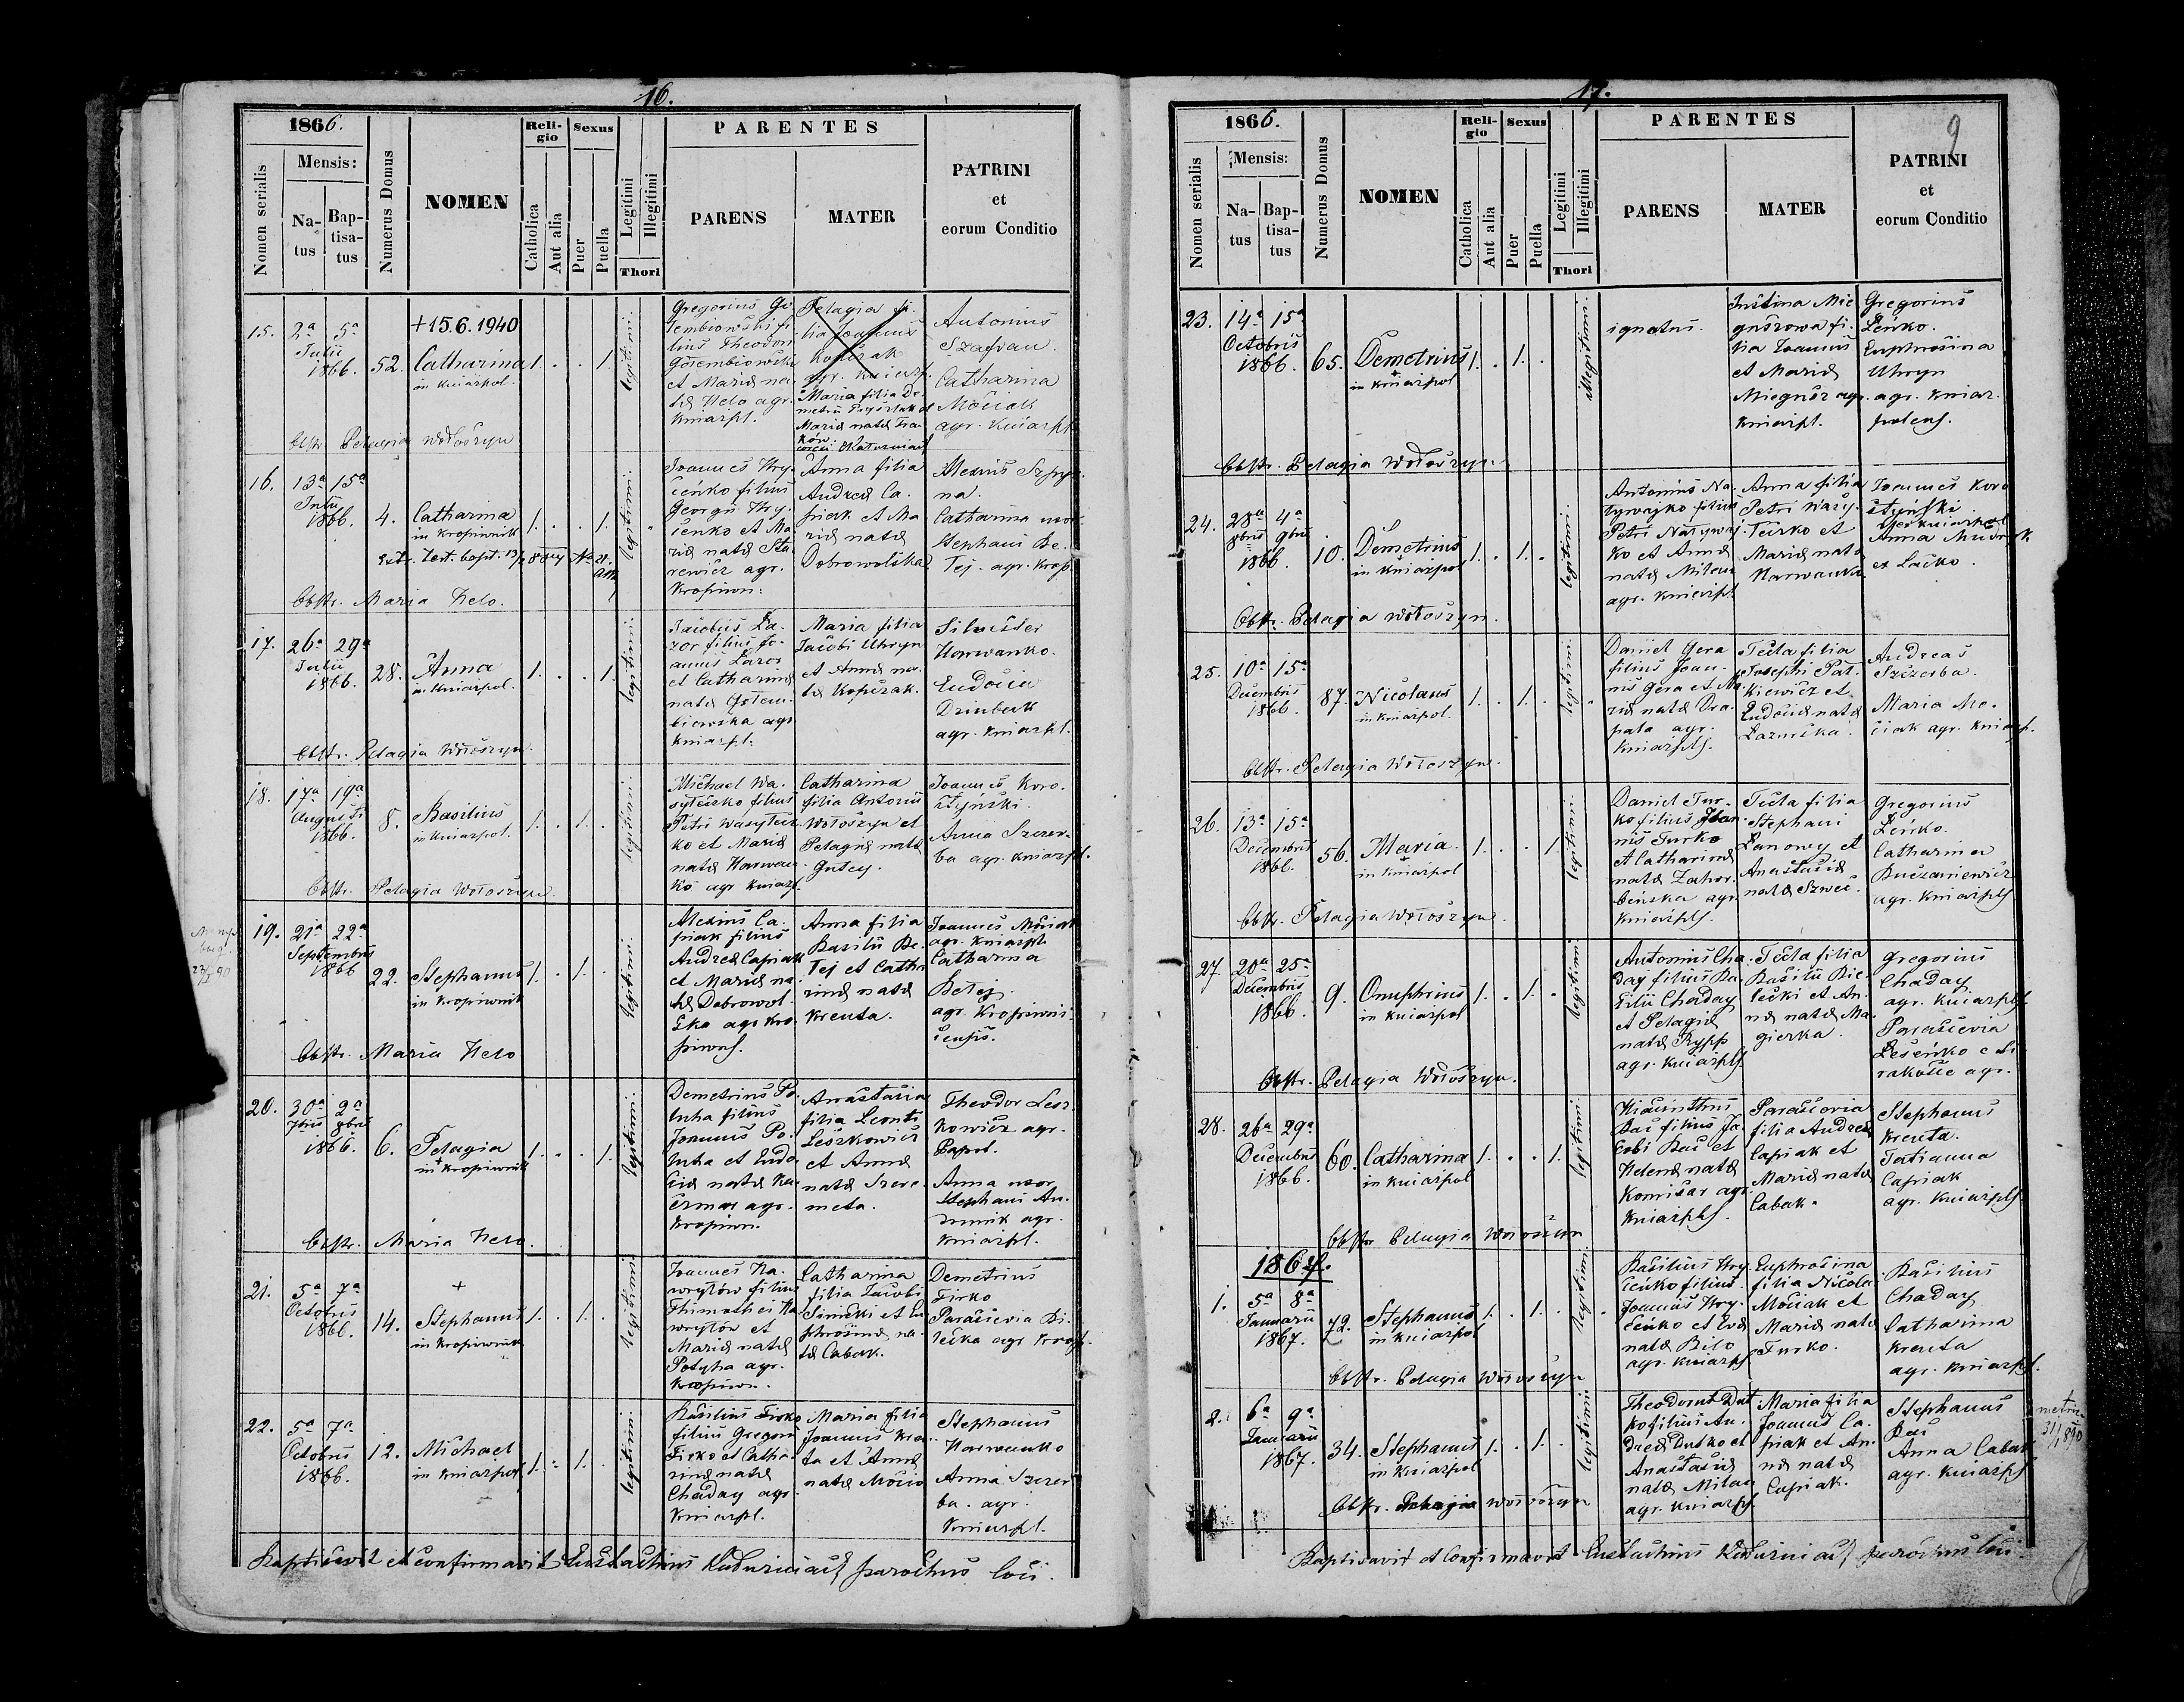 16.
1866.
Nomen serialis
Mensis:
Na-
tus
Bap-
tisa-
tus
Numerus Domus
NOMEN
Reli-
gio
Catholica
Aut alia
Sexus
Puer
Puella
Legitimi
Illegitimi
Thori
PARENTES
PARENS
MATER
PATRINI
et
eorum Conditio
15.
2a 5a
Julii
1866.
52.
+15.6.1940
Catharina
in Kniaźpol.
1. . . 1.
legitimi.
Gregorius Go
łembiowski fi
lius Theodori
Gołembiowski
et Mariæ na
tæ Helo agr.
Kniaźpl.
Pelagia fi-
lia Joannis
Kopczak
agr. Kniaźp.
Maria filia De
metrii
Mariæ natæ
Antonius
Szafran.
Catharina
Mociak
agr. Kniaźpl
Obstr. Pelagia Wołoszyn
16.
13a 15a
Julii
1866.
4.
Catharina
in Kropiwnik
1. . . 1.
legitimi.
Joannes Hry-
ceńko filius
Georgii Hry-
ceńko et Ma
riæ natæ Sta
rewicz agr.
Kropiwn:
Anna filia
Andreæ Ca-
priak et Ma
riæ natæ
Dobrowolska
Alexius
na.
Catharina uxor
Stephani Be-
łej. agr. Krop
Obstr. Maria Helo.
17.
26a 29a
Julii
1866.
28.
Anna
in Kniaźpol.
1. . . 1.
legitimi.
Jacobus Ła-
zor filius Jo-
annis Łazor
et Catharinæ
natæ Gołem-
biowska agr
Kniaźpl.
Maria filia
Jacobi Uhryn
et Annæ na-
tæ Kopczak.
Silvester
Harwanko.
Eudocia
Dziubak
agr. Kniaźpl.
Obstr. Pelagia Wołoszyn.
18.
17a 19a
Augusti
1866.
8.
Basilius
in Kniaźpol.
1. . 1. .
legitimi.
Michael Wa-
sylećko filius
Petri Wasyleć
ko et Mariæ
natæ Harwan
ko agr Kniaźp.
Catharina
filia Antonii
Wołoszyn et
Pelagiæ natæ
Gutey.
Joannes Koro-
styński.
Anna Szczer-
ba agr. Kniaźpl.
Obstr. Pelagia Wołoszyn.
19.
21a 22a
Septembris
1866
22.
Stephanus
in Kropiwnik
1. . 1. .
legitimi.
Alexius Ca-
priak filius
Andreæ Capriak
et Mariæ na
tæ Dobrowol-
ska agr Kro-
piwns.
Anna filia
Basilii Be-
łej et Catha
rinæ natæ
Kreuta.
Joannes Mociak
agr. Kniaźpl
Catharina
Bełej
agr. Kropiwni-
censis.
Obstr. Maria Helo
20.
30a 2a
7bris 8bris
1866.
6.
Pelagia
in Kropiwnik
1. . . 1.
legitimi.
Demetrius Po
luha filius
Joannis Po-
luha et Eudo
ciæ natæ
agr.
Kropiwn.
Anastasia
filia Leonti
Leszkowicz
et Annæ
natæ Szere-
meta.
Theodor Lesz-
kowicz agr.
Anna uxor
Stephani An-
drunik agr.
Kniaźpl.
Obstr. Maria Helo.
21.
5a 7a
Octobris
1866.
14.
+
Stephanus
in Kropiwnik
1. . 1. .
legitimi
Joannes Ha-
wryłów filius
Thimothei Ha
wryłów et
Mariæ natæ
Potyha agr.
Kropiwn.
Catharina
filia Jacobi
Simicki et Eu
phrosinæ na-
tæ Cabak.
Demetrius
Firko
Parascevia Bi-
lecka agr Kropi.
22.
5a 7a
Octobris
1866.
12.
Michael
in Kniaźpol
1. . 1. .
legitimi.
Basilius Firko
filius Gregorii
Firko et Catha-
rinæ natæ
Chaday agr
Kniaźpl.
Maria filia
Joannis Kreu
ta et Annæ
natæ Mocio
Stephanus
Harwanko
Anna Szczer
ba. agr.
Kniaźpl.
Baptisavit et confirmavit Eustachius parochus loci.
17.
9
1866.
Nomen serialis
Mensis:
Na-
tus
Bap-
tisa-
tus
Numerus Domus
NOMEN
Reli-
gio
Catholica
Aut alia
Sexus
Puer
Puella
Legitimi
Illegitimi
Thori
PARENTES
PARENS
MATER
PATRINI
et
eorum Conditio
23.
14a 15a
Octobris
1866.
65.
Demetrius
+
in Kniaźpol
1. . 1. .
illegitimi.
ignotus.
Justina Mie
guszowa fi-
lia Joannis
et Mariæ
agr.
Kniaźpl.
Gregorius
Leńko.
Euphrosina
Uhryn
agr. Kniaź-
polens.
Obstr. Pelagia Wołoszyn.
24.
28a 4a
8bris 9bris
1866.
10.
Demetrius
+
in Kniaźpol
1. . 1. .
legitimi.
Antonius Na-
tywajko filius
Petri Natywaj-
ko et Annæ
natæ Milan
agr. Kniaźpl.
Anna filia
Petri Wasy-
lećko et
Mariæ natæ
Harwanko
Joannes Koro
styński
Anna
et Lacko.
Obstr. Pelagia Wołoszyn.
25.
10a 15a
Decembris
1866.
87.
Nicolaus
in Kniaźpol.
1. . 1. .
legitimi.
Daniel Gera
filius Joan-
nis Gera et Ma-
riæ natæ Dra-
pała agr.
Kniaźpls.
Tecla filia
Josephi Pat-
kiewicz et
Eudociæ natæ
Andreas
Szczerba.
Maria Mo-
ciak agr. Kniaźp.
Obstr. Pelagia Wołoszyn.
26.
13a 15a
Decembris
1866.
56.
Maria
+
in Kniaźpol
1. . . 1.
legitimi.
Daniel Tur-
ko filius Joan
nis Turko
et Catharinæ
natæ Zahor-
beńska agr
Kniaźpls.
Tecla filia
Stephani
Łanowy et
Anastasiæ
natæ Szwec.
Gregorius
Leńko.
Catharina
agr. Kniaźpls
Obstr. Pelagia Wołoszyn.
27
20a 25a
Decembris
1866.
9.
Onuphrius
in Kniaźpol
1. . 1. .
legitimi
Antonius Cha-
day filius Ba-
silii Chaday
et Pelagiæ
natæ Rypp
agr. Kniaźpls.
Tecla filia
Basilii Bie-
lecki et An-
næ natæ Ma-
gierka.
Gregorius
Chaday
agr. Kniaźpls.
Parascevia
agr.
Obstr. Pelagia Wołoszyn.
28.
26a 29a
Decembris
1866.
60.
Catharina
in Kniaźpol
1. . . 1.
legitimi
Hiacinthus
Bac filius Ja-
cobi Bac et
Helenæ natæ
Komisar agr
Kniaźpls.
Parascevia
filia Andreæ
Capriak et
Mariæ natæ
Cabak.
Stephanus
Kreuta.
Tatianna
Capriak
agr. Kniaźpls
Obstr Pelagia Wołoszyn
1867.
1.
5a 8a
Januarii
1867.
72.
Stephanus
in Kniaźpol
1. . 1. .
legitimi.
Basilius Hry-
ceńko filius
Joannis Hry-
ceńko et Evæ
natæ Bilo
agr. Kniaźpls
Euphrosina
filia Nicolai
Mociak et
Mariæ natæ
Turko.
Basilius
Chaday
Catharina
Kreuta
agr. Kniaźpl.
Obstr. Pelagia Wołoszyn
2.
6a 9a
Januarii
1867.
34.
Stephanus
in Kniaźpol
1. . 1. .
legitimi
Theodorus Dut
ko filius An-
dreæ Dutko et
Anastasiæ
natæ Milan
agr. Kniaźpl.
Maria filia
Joannis Ca-
priak et An-
næ natæ
Capriak.
Stephanus
Bac
Anna Cabak
agr. Kniaźpls
Obstr. Pelagia Wołoszyn
Baptisavit et Confirmavit Eustachius parochus loci.